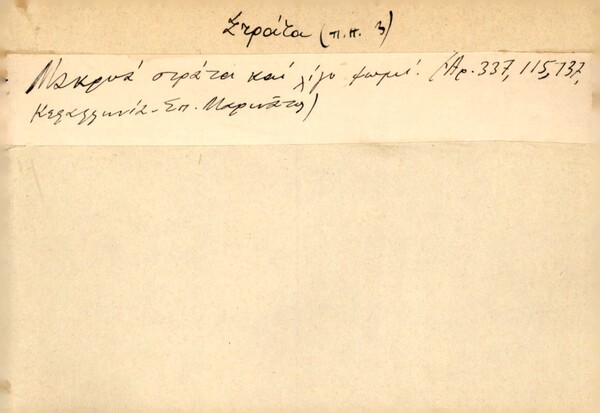 Στράτα (π.π. 3)
Μακρυά στράτα καί λίγο ψωμί. (Αρ. 337, 115, 137,
Κεφαλληνία - Σπ. Μαρινάτος)